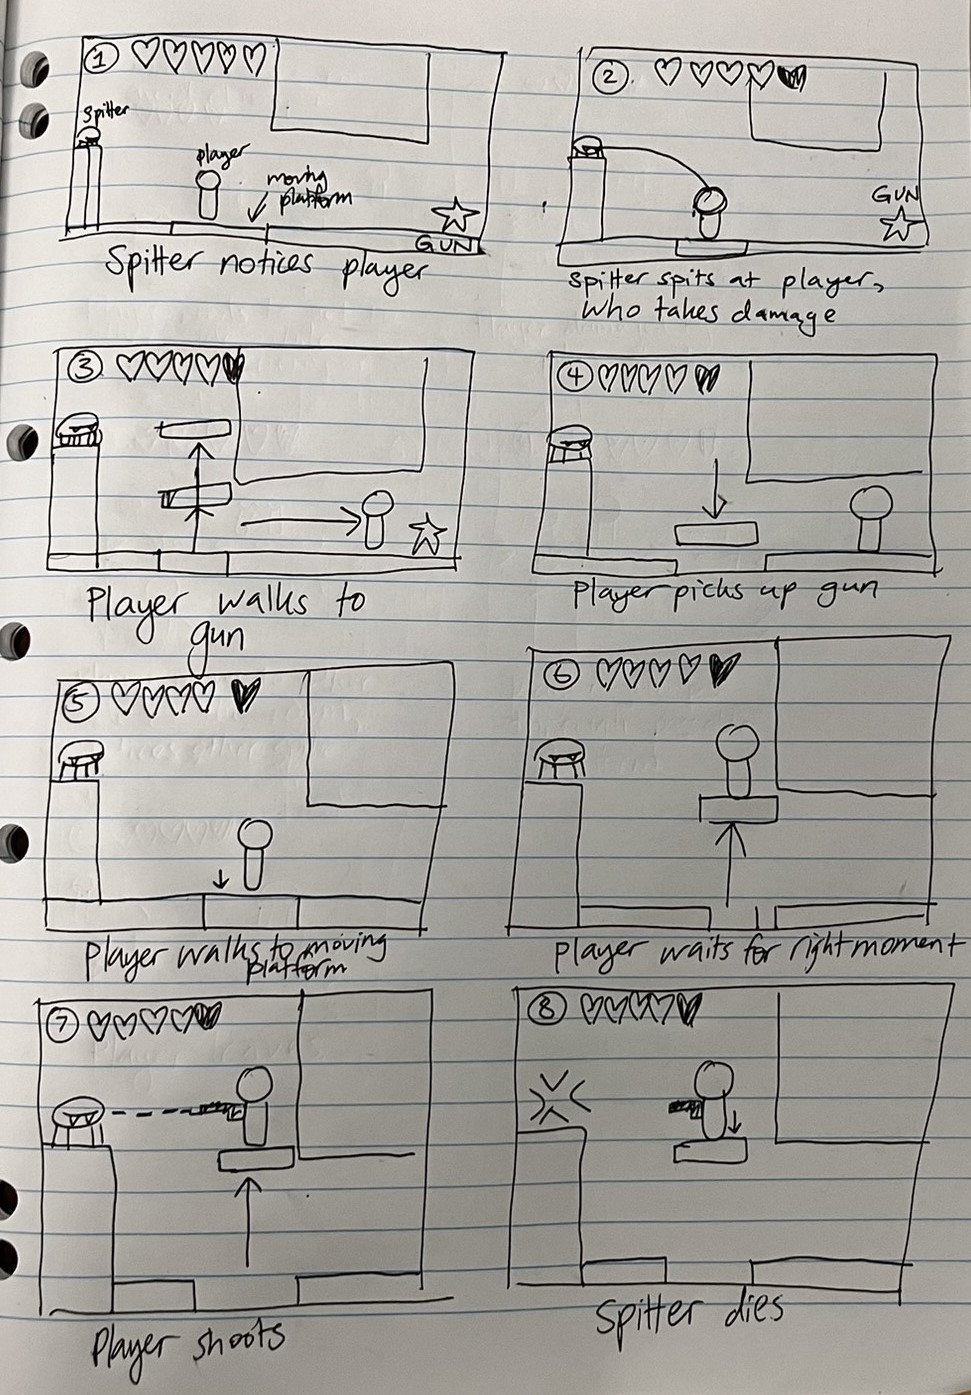 ①
Spitter
player
moving
platform
GUN
Spitter notices player
②
GUN
Spitter spits at player,
who takes damage
③
Player walks to
gun
④
Player picks up gun
⑤
Player walks to moving
platform
⑥
Player waits for right moment
⑦
Player shoots
⑧
Spitter dies